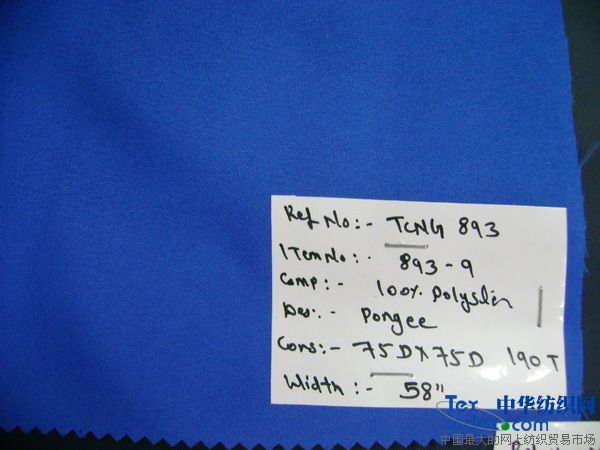 Ref No:- TCNG 893
ITem No:- 893-9
Comp:- 100% Polyster
Des:- Pongee
Cons:- 75D X 75D 190T
Width:- 58"
Tex 中华纺织网
.com
中国最大的网上纺织贸易市场